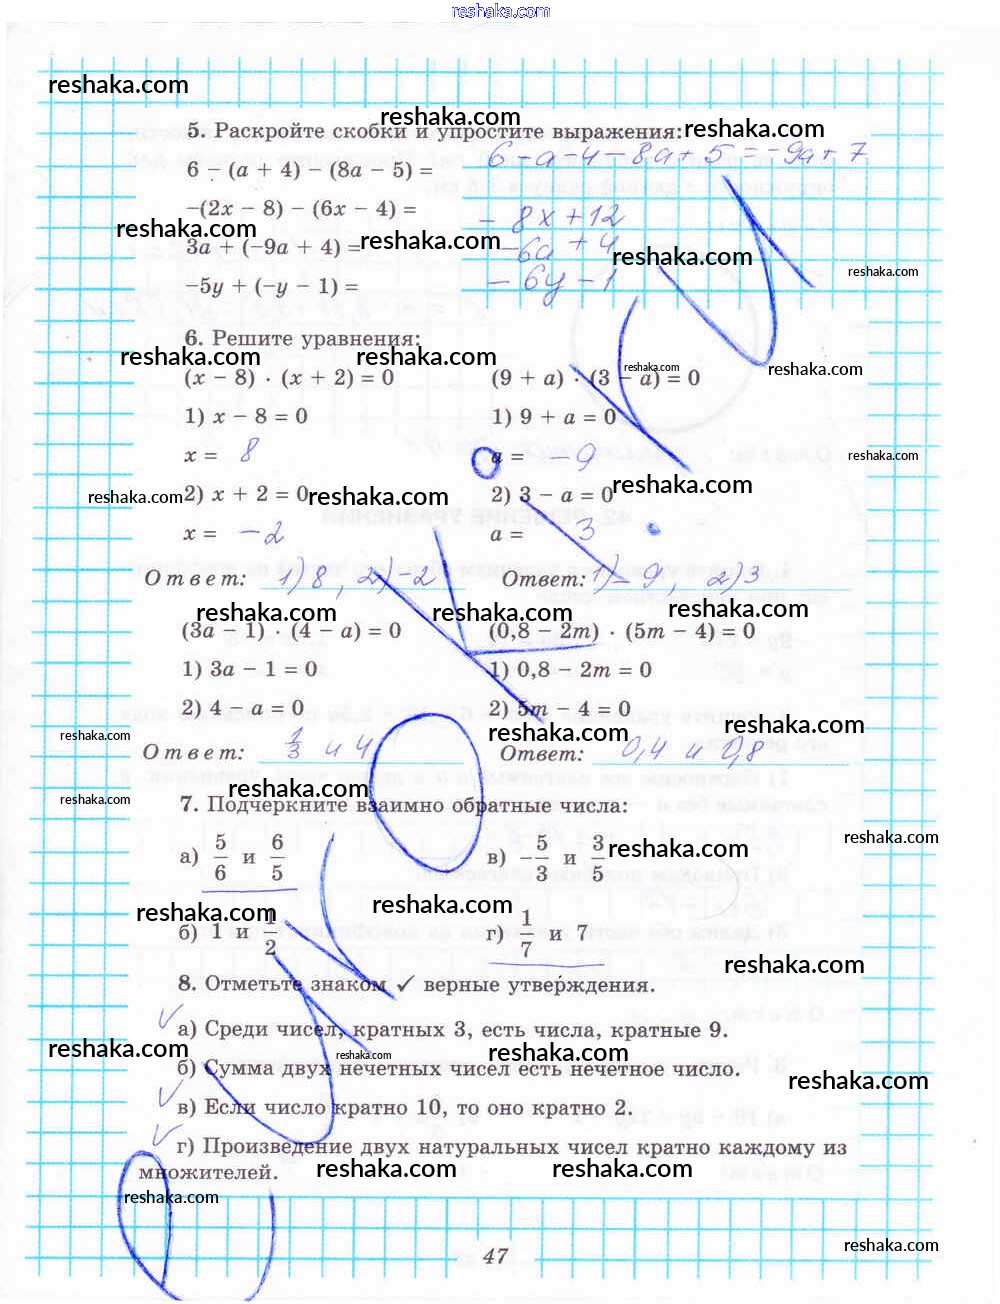 reshaka.com
reshaka.com
reshaka.com
5. Раскройте скобки и упростите выражения: reshaka.com
6 − (a + 4) − (8a − 5) = 6 − a − 4 − 8a + 5 = −9a + 7
−(2x − 8) − (6x − 4) = − 8x + 12
reshaka.com reshaka.com reshaka.com
3a + (−9a + 4) = −6a + 4
reshaka.com
−5y + (−y − 1) = − 6y − 1
6. Решите уравнения:
reshaka.com reshaka.com reshaka.com reshaka.com
(x − 8) · (x + 2) = 0 (9 + a) · (3 − a) = 0
1) x − 8 = 0 1) 9 + a = 0
x = 8 a = −9
reshaka.com
2) x + 2 = 0 2) 3 − a = 0
reshaka.com reshaka.com reshaka.com
x = −2 a = 3
Ответ: 1) 8, 2) −2 Ответ: 1) −9, 2) 3
reshaka.com reshaka.com reshaka.com
(3a − 1) · (4 − a) = 0 (0,8 − 2m) · (5m − 4) = 0
1) 3a − 1 = 0 1) 0,8 − 2m = 0
2) 4 − a = 0 2) 5m − 4 = 0
reshaka.com reshaka.com reshaka.com
Ответ: 1/3 и 4 Ответ: 0,4 и 0,8
reshaka.com
reshaka.com
7. Подчеркните взаимно обратные числа:
reshaka.com
а) 5/6 и 6/5 в) −5/3 и 3/5 reshaka.com
reshaka.com reshaka.com
б) 1 и 1/2 г) 1/7 и 7
reshaka.com
8. Отметьте знаком ✓ верные утверждения.
✓ а) Среди чисел, кратных 3, есть числа, кратные 9.
reshaka.com reshaka.com reshaka.com
б) Сумма двух нечетных чисел есть нечетное число.
reshaka.com
✓ в) Если число кратно 10, то оно кратно 2.
✓ г) Произведение двух натуральных чисел кратно каждому из
множителей. reshaka.com reshaka.com
reshaka.com
reshaka.com
47